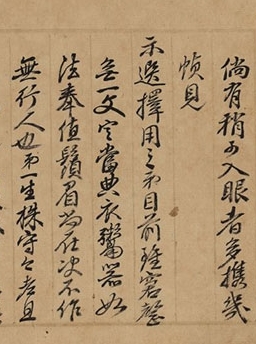 倘有稍可入眼者多携幾
幀見
示選擇用之弟目前雖窘罄
無一文定當典衣鬻器如
法奉值鬚眉尚在决不作
無行人也弟一生株守今老且